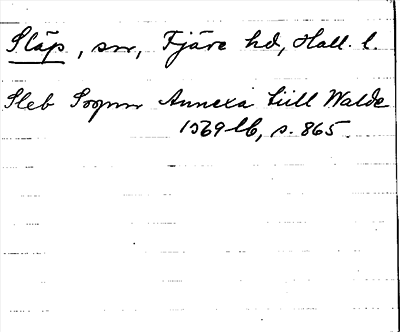 Släp, sn, Fjäre hd, Hall. l.
Sleb Sognn Annexa till Walde
1569 lb, s. 865.